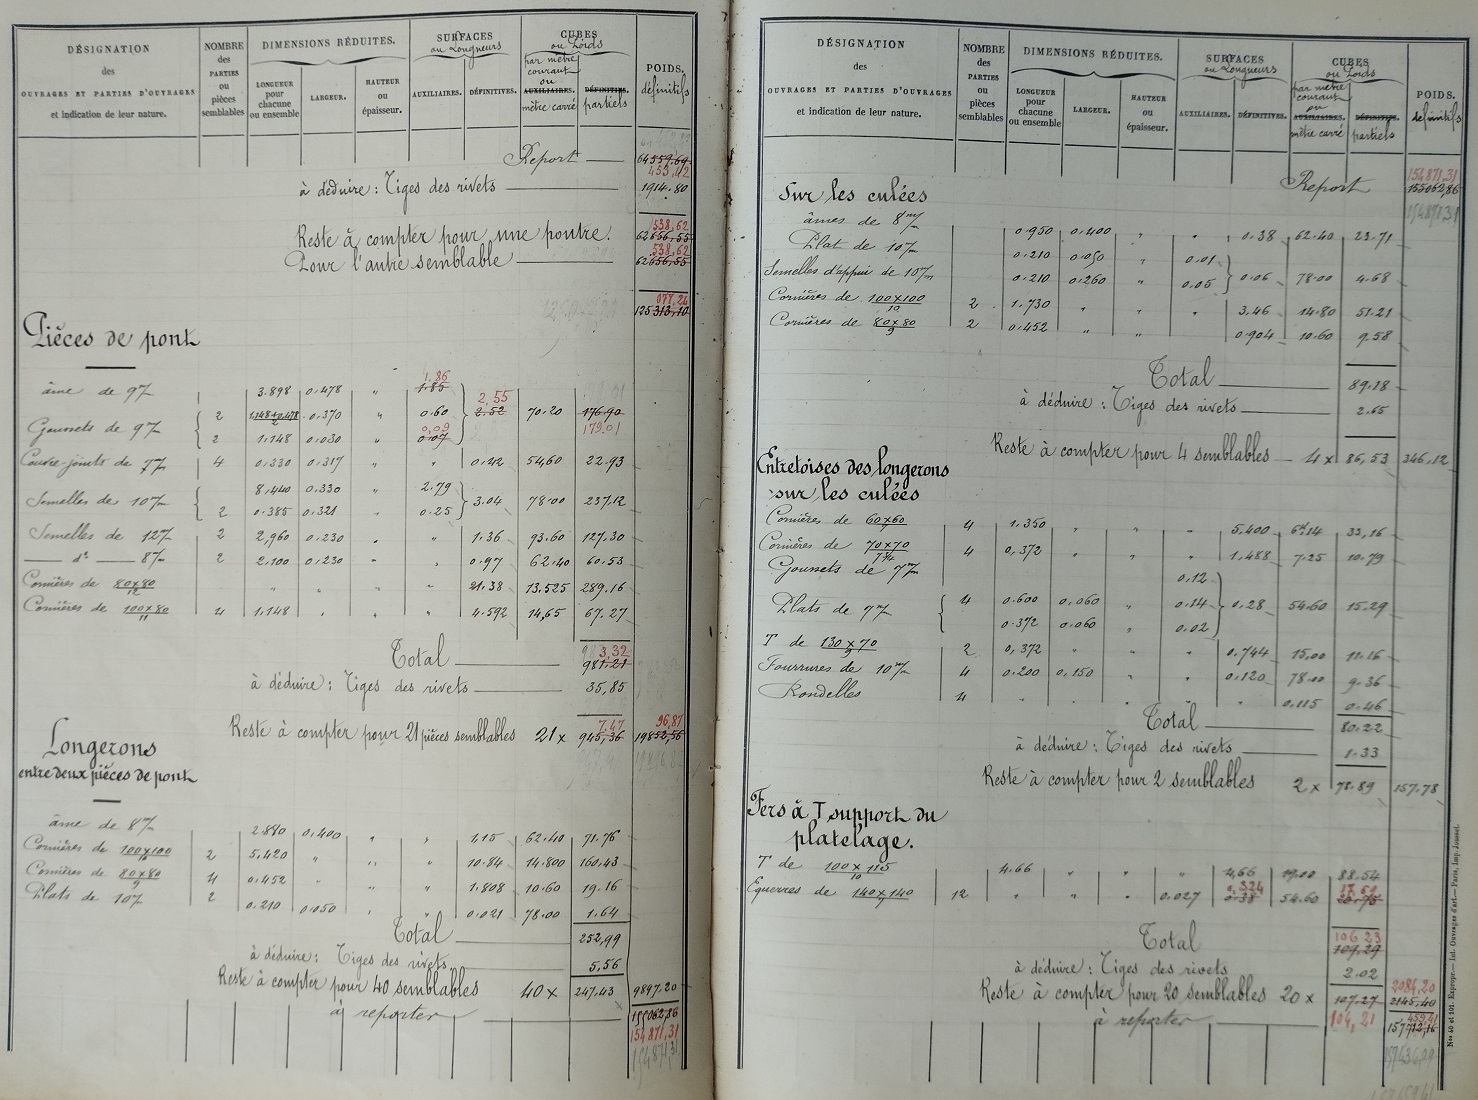 DÉSIGNATION
des
OUVRAGES ET PARTIES D'OUVRAGES
et indication de leur nature.
NOMBRE
des
PARTIES
ou
pièces
semblables
DIMENSIONS RÉDUITES.
LONGUEUR
pour
chacune
ou ensemble
LARGEUR.
HAUTEUR
ou
épaisseur.
SURFACES
ou Longueurs
AUXILIAIRES.
DÉFINITIVES.
CUBES
ou Poids
par mètre
courant
ou
AUXILIAIRES.
mètre carré
DÉFINITIFS.
partiels
POIDS.
définitifs
Report 64559.69
453,42
à déduire : Tiges des rivets 1914.80
538,62
Reste à compter pour une poutre. 62656,55
538,62
Pour l'autre semblable 62656,55
077,24
125313,10
Pièces de pont
1,86
âme de 9m/m 1 3.898 0.478 " 1.85
2,55
2 1.148+0.478/2 0.370 " 0.60 2.52 70.20 176.90
Goussets de 9m/m 0,09 179.01
2 1.148 0.030 " 0.07
Couvre-joints de 7m/m 4 0.330 0.317 " " 0.42 54,60 22.93
8,440 0.330 " 2.79
Semelles de 10m/m 3.04 78.00 237.12
2 0.385 0.321 " 0.25
Semelles de 12m/m 2 2,960 0.230 " " 1.36 93.60 127.30
— d° — 8m/m 2 2.100 0.230 " " 0.97 62.40 60.53
Cornières de 80×80/12 " " " " 21.38 13.525 289.16
Cornières de 100×80/11 4 1.148 " " " 4.592 14,65 67.27
3,32
Total 981.21
à déduire : Tiges des rivets 35,85
7,47 96,87
Reste à compter pour 21 pièces semblables 21× 945,36 19852,56
Longerons
entre deux pièces de pont
âme de 8m/m 2.880 0.400 " " 1,15 62.40 71.76
Cornières de 100×100/10 2 5.420 " " " 10.84 14.800 160.43
Cornières de 80×80/9 4 0.452 " " " 1.808 10.60 19.16
Plats de 10m/m 2 0.210 0.050 " " 0.021 78.00 1.64
Total 252,99
à déduire : Tiges des rivets 5,56
Reste à compter pour 40 semblables 40× 247.43 9897.20
à reporter 155062,86
154871,31
154871,31
DÉSIGNATION
des
OUVRAGES ET PARTIES D'OUVRAGES
et indication de leur nature.
NOMBRE
des
PARTIES
ou
pièces
semblables
DIMENSIONS RÉDUITES.
LONGUEUR
pour
chacune
ou ensemble
LARGEUR.
HAUTEUR
ou
épaisseur.
SURFACES
ou Longueurs
AUXILIAIRES.
DÉFINITIVES.
CUBES
ou Poids
par mètre
courant
ou
AUXILIAIRES.
mètre carré
DÉFINITIFS.
partiels
POIDS.
définitifs
154871,31
Report 155062,86
154871,31
Sur les culées
âmes de 8m/m 0.950 0.400 " " 0.38 62.40 23.71
Plat de 10m/m 0.210 0.050 0.01
Semelles d'appui de 10m/m 0.210 0.260 0.05 0.06 78.00 4.68
Cornières de 100×100/10 2 1.730 " " " 3.46 14.80 51.21
Cornières de 80×80/9 2 0.452 " " 0.904 10.60 9.58
Total 89.18
à déduire : Tiges des rivets 2.65
Reste à compter pour 4 semblables 4× 86,53 346,12
Entretoises des longerons
sur les culées
Cornières de 60×60 4 1.350 " " " 5.400 6.14 33,16
Cornières de 70×70/7¾ 4 0,372 " " " 1.488 7.25 10.79
Goussets de 7m/m 0.12
Plats de 7m/m 4 0.600 0,060 " 0.14 0.28 54.60 15.29
0.372 0.060 " 0.02
T de 130×70/9 2 0,372 " " " 0.744 15,00 11.16
Fourrures de 10m/m 4 0.200 0,150 " " 0.120 78.00 9.36
Rondelles 4 " " 0.115 0.46
Total 80.22
à déduire : Tiges des rivets 1.33
Reste à compter pour 2 semblables 2× 78.89 157.78
Fers à T support du
platelage.
T de 100×115/10 4.66 " " " 4,66 19.00 88.54
0.324 17.69
Equerres de 140×140 12 " " " 0.027 0.38 54.60 20.75
106 23
Total 109.29
à déduire : Tiges des rivets 2.02
2084,20
Reste à compter pour 20 semblables 20× 107.27 2145,40
104,21 459,41
à reporter 157712,16
Nos 40 et 101. Expropr.— Lat. Ouvrages d'art.— Paris, Imp. Jousset.